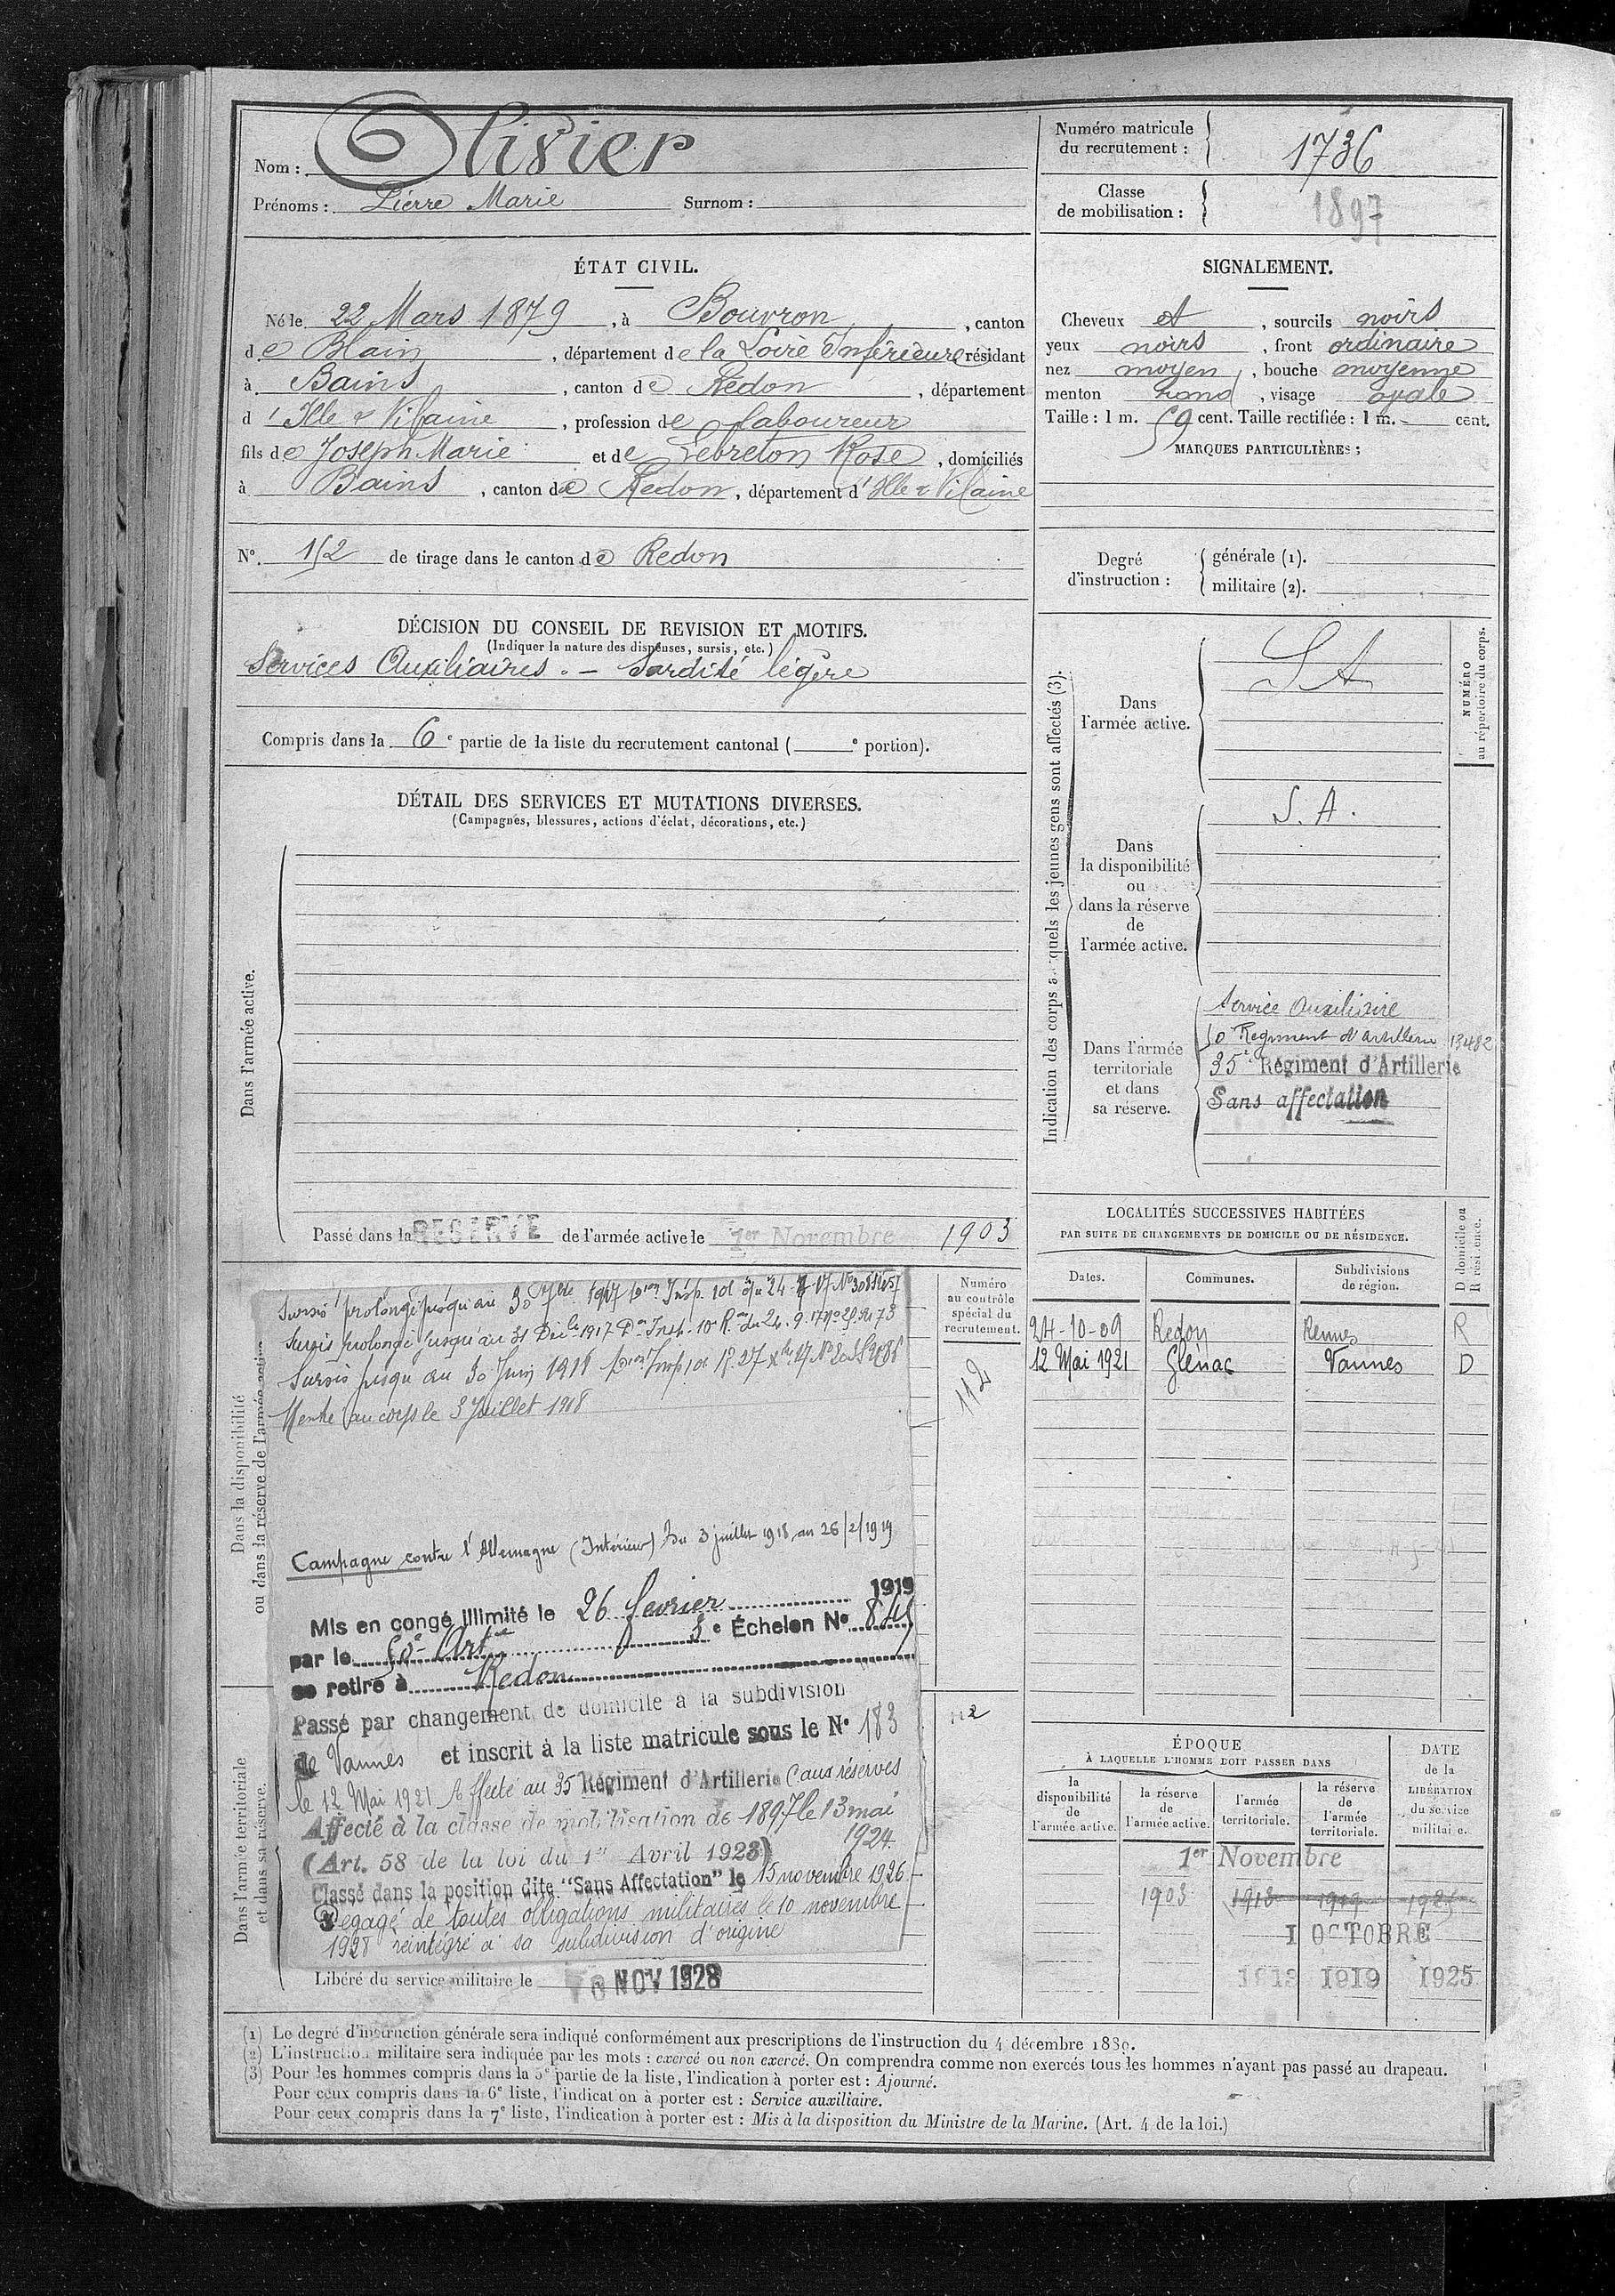 Nom : Olivier
Prénoms : Pierre Marie Surnom :
Numéro matricule
du recrutement : 1736
Classe
de mobilisation : 1897
ÉTAT CIVIL.
Né le 22 Mars 1879, à Bouvron, canton
de Blain, département de la Loire Inférieure résidant
à Bains, canton de Redon, département
d'Ille & Vilaine, profession de laboureur
fils de Joseph Marie et de Lebreton Rose, domiciliés
à Bains, canton de Redon, département d'Ille & Vilaine
SIGNALEMENT.
Cheveux et, sourcils noirs
yeux noirs, front ordinaire
nez moyen, bouche moyenne
menton rond, visage ovale
Taille : 1 m. 59 cent. Taille rectifiée : 1 m. - cent.
MARQUES PARTICULIÈRES :
N°. 152 de tirage dans le canton de Redon
Degré
d'instruction :
générale (1).
militaire (2).
DÉCISION DU CONSEIL DE REVISION ET MOTIFS.
(Indiquer la nature des dispenses, sursis, etc.)
Services Auxiliaires. - Surdité légère
Compris dans la 6e partie de la liste du recrutement cantonal ( e portion).
DÉTAIL DES SERVICES ET MUTATIONS DIVERSES.
(Campagnes, blessures, actions d'éclat, décorations, etc.)
Dans l'armée active.
Passé dans la RESERVE de l'armée active le 1er Novembre 1903
Indication des corps auxquels les jeunes gens sont affectés (3).
NUMÉRO
au répertoire du corps.
Dans
l'armée active.
S A
Dans
la disponibilité
ou
dans la réserve
de
l'armée active.
S. A.
Dans l'armée
territoriale
et dans
sa réserve.
Service Auxiliaire
50 Regiment d'Artillerie 13482
35e Régiment d'Artillerie
Sans affectation
LOCALITÉS SUCCESSIVES HABITÉES
PAR SUITE DE CHANGEMENTS DE DOMICILE OU DE RÉSIDENCE.
D domicile ou
R résidence.
Dates. Communes. Subdivisions
de région.
24-10-09 Redon Rennes R
12 Mai 1921 Glénac Vannes D
Dans la disponibilité
ou dans la réserve de l'armée active
Numéro
au contrôle
spécial du
recrutement.
112
Sursis prolongé jusqu'au 30 1917
Sursis prolongé jusqu'au 31 Déc 1917
Sursis jusqu'au 30 Juin 1918
au corps le 3 Juillet 1918
Campagne contre l'Allemagne (Intérieur) Du 3 juillet 1918 au 26/2/1919
Mis en congé illimité le 26 fevrier 1919
par le 50e Artie 5e Échelon N° 845
se retire à Redon
Passé par changement de domicile à la subdivision
de Vannes et inscrit à la liste matricule sous le N° 183
le 12 Mai 1921 Affecté au 35 Régiment d'Artillerie aux réserves
Affecté à la classe de mobilisation de 1897 le 13 mai
1924
(Art. 58 de la loi du 1er Avril 1923)
Classé dans la position dite "Sans Affectation" le 15 novembre 1926
Dégagé de toutes obligations militaires le 10 novembre
1928 réintégré à sa subdivision d'origine
Dans l'armée territoriale
et dans sa réserve.
Libéré du service militaire le 10 NOV 1928
ÉPOQUE
À LAQUELLE L'HOMME DOIT PASSER DANS
la
disponibilité
de
l'armée active.
la réserve
de
l'armée active.
l'armée
territoriale.
la réserve
de
l'armée
territoriale.
DATE
de la
LIBÉRATION
du service
militaire.
1er Novembre
1903 1913 1919
1 OCTOBRE
1913 1919 1925
(1) Le degré d'instruction générale sera indiqué conformément aux prescriptions de l'instruction du 4 décembre 1889.
(2) L'instruction militaire sera indiquée par les mots : exercé ou non exercé. On comprendra comme non exercés tous les hommes n'ayant pas passé au drapeau.
(3) Pour les hommes compris dans la 5e partie de la liste, l'indication à porter est : Ajourné.
Pour ceux compris dans la 6e liste, l'indication à porter est : Service auxiliaire.
Pour ceux compris dans la 7e liste, l'indication à porter est : Mis à la disposition du Ministre de la Marine. (Art. 4 de la loi.)